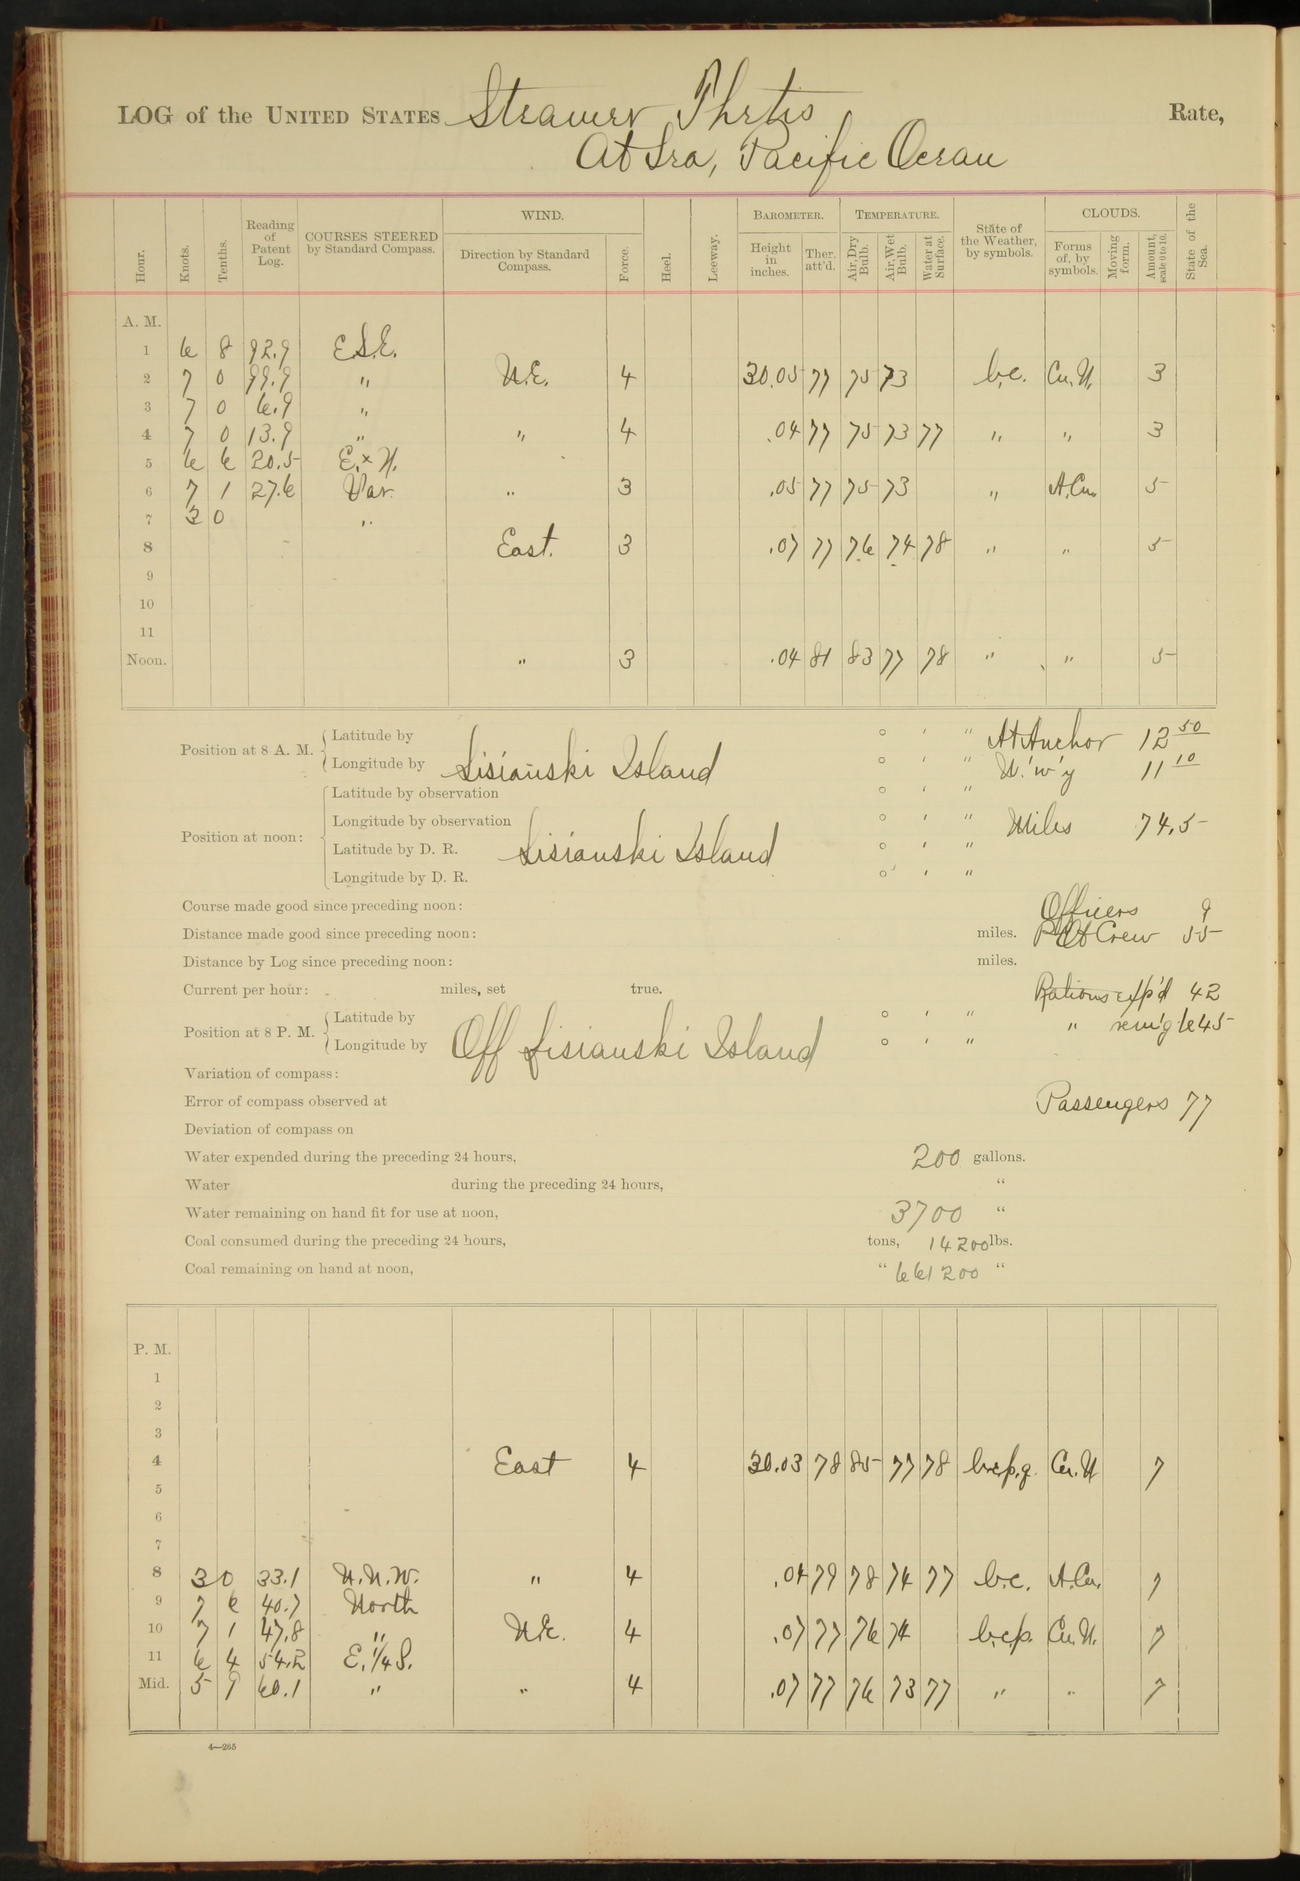 LOG of the UNITED STATES Steamer Thetis Rate,
At Sea, Pacific Ocean
Hour. Knots. Tenths. Reading of Patent Log. COURSES STEERED by Standard Compass. WIND. Direction by Standard Compass. Force. Heel. Leeway. BAROMETER. Height in inches. Ther. att'd. TEMPERATURE. Air, Dry Bulb. Air, Wet Bulb. Water at Surface. State of the Weather, by symbols. CLOUDS. Forms of, by symbols. Moving form. Amount, scale 0 to 10. State of the Sea.
A. M.
1 6 8 92.9 E.S.E.
2 7 0 99.9 " N.E. 4 30.05 77 75 73 b.c. Cu.N. 3
3 7 0 6.9 "
4 7 0 13.9 " " 4 .04 77 75 73 77 " " 3
5 6 6 20.5 E. x N.
6 7 1 27.6 Var. " 3 .05 77 75 73 " A.Cu. 5
7 3 0 "
8 East. 3 .07 77 76 74 78 " " 5
9
10
11
Noon. " 3 .04 81 83 77 78 " " 5
Position at 8 A. M. Latitude by ° ' " At Anchor 12 50
Longitude by Lisianski Island ° ' " U.'w'y 11 10
Position at noon: Latitude by observation ° ' "
Longitude by observation ° ' " Miles 74.5
Latitude by D. R. Lisianski Island ° ' "
Longitude by D. R. ° ' "
Course made good since preceding noon: Officers 9
Distance made good since preceding noon: miles. Crew 55
Distance by Log since preceding noon: miles.
Current per hour: miles, set true. Rations exp'd 42
Position at 8 P. M. Latitude by ° ' " " rem'g 645
Longitude by Off Lisianski Island ° ' "
Variation of compass:
Error of compass observed at Passengers 77
Deviation of compass on
Water expended during the preceding 24 hours, 200 gallons.
Water during the preceding 24 hours, "
Water remaining on hand fit for use at noon, 3700 "
Coal consumed during the preceding 24 hours, tons, 14200 lbs.
Coal remaining on hand at noon, " 661200 "
P. M.
1
2
3
4 East 4 30.03 78 85 77 78 b.c.p.q. Cu.N 7
5
6
7
8 3 0 33.1 N.N.W. " 4 .04 79 78 74 77 b.c. A.Cu. 7
9 7 6 40.7 North
10 7 1 47.8 " N.E. 4 .07 77 76 74 b.c.p. Cu.N. 7
11 6 4 54.2 E. 1/4 S.
Mid. 5 9 60.1 " " 4 .07 77 76 73 77 " " 7
4—265